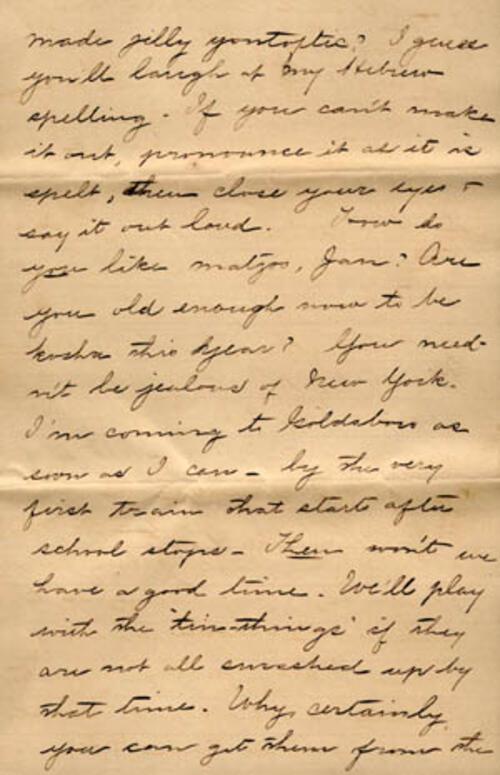 made jelly yontoptic? I guess
you'll laugh at my Hebrew
spelling. If you can't make
it out, pronounce it as it is
spelt, then close your eyes +
say it out loud. How do
you like matzos, Jan? Are
you old enough now to be
kosha this year? You need-
n't be jealous of New York.
I'm coming to Goldsboro as
soon as I can - by the very
first train that start after
school stops - Then won't we
have a good time. We'll play
with the "tin-things" if they
are not all smashed up by
that time. Why, certainly
you can get them from the